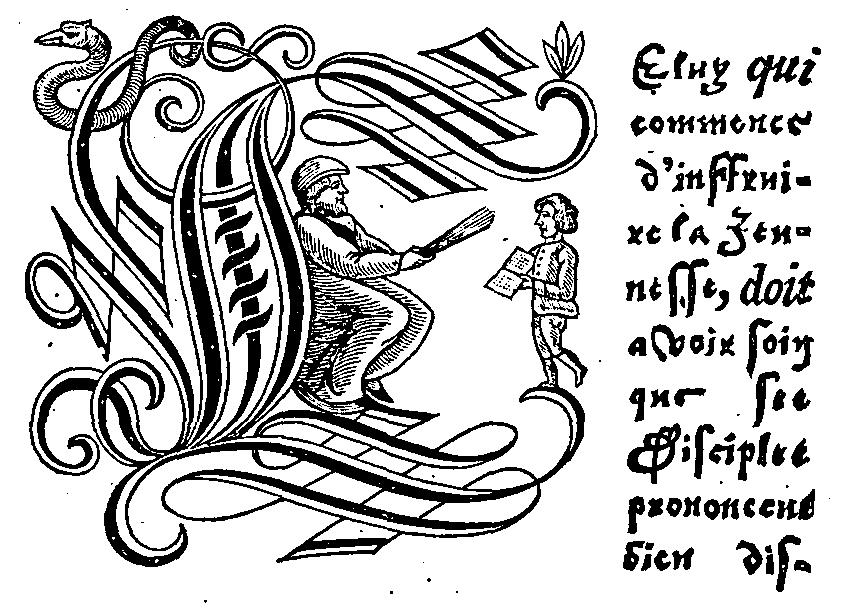 Celuy qui
commence
d'inſtrui-
re la Jeu-
neſſe, doit
avoir ſoin
que ſes
Diſciples
prononcent
bien diſ-